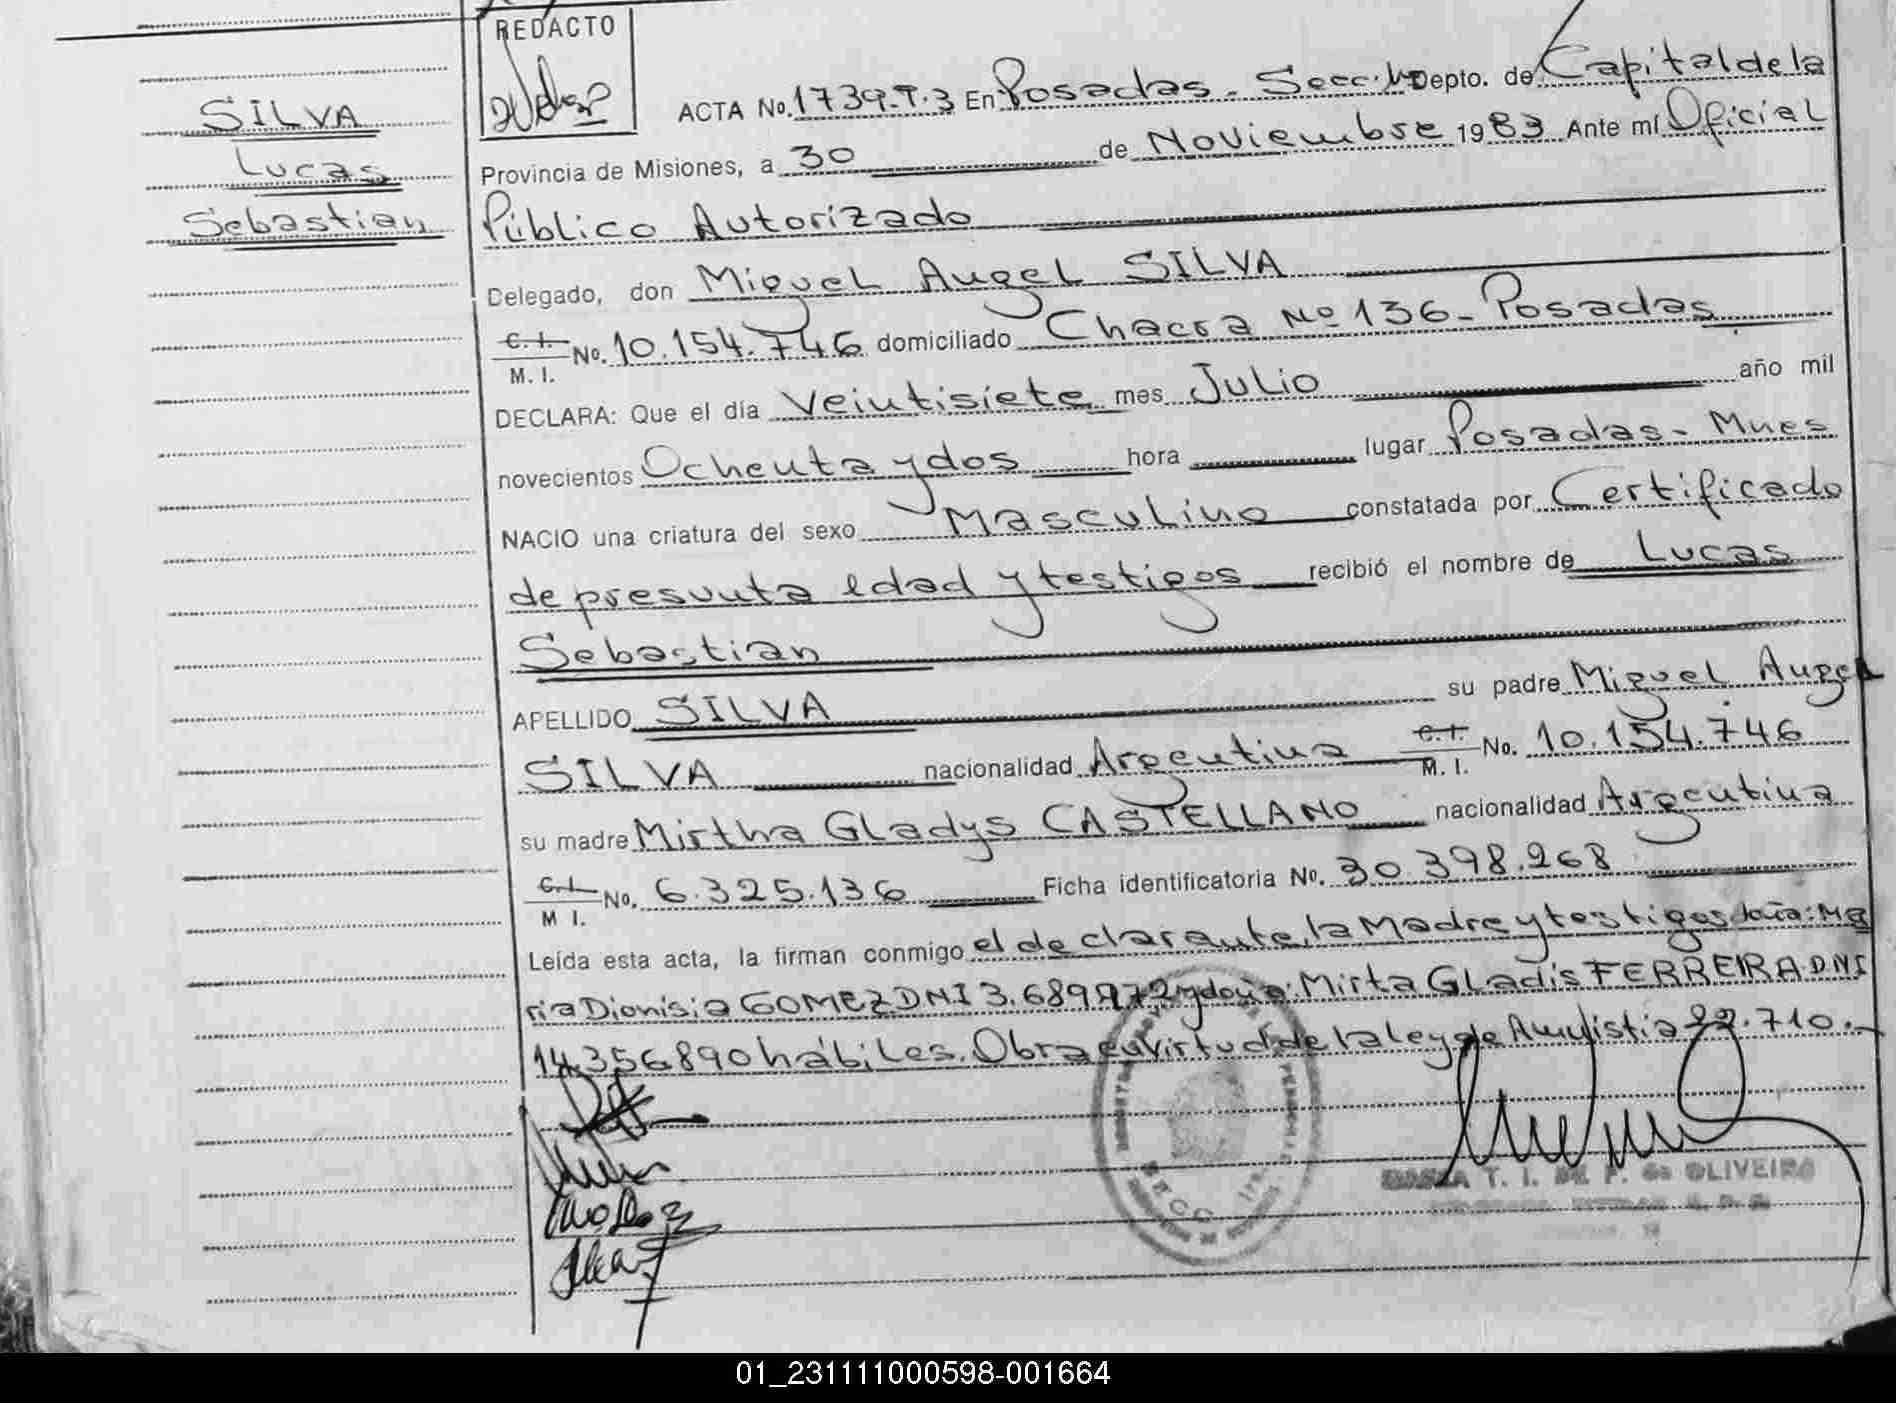 REDACTO
SILVA
Lucas
Sebastian
ACTA No. 1739.T.3 En Posadas - Secc. Depto. de Capital de la
Provincia de Misiones, a 30 de Noviembre 1983 Ante mí Oficial
Público Autorizado
Delegado, don Miguel Angel SILVA
C. I. M. I. No. 10.154.746 domiciliado Chacra Nº 136 - Posadas
DECLARA: Que el día Veintisiete mes Julio año mil
novecientos Ochenta y dos hora lugar Posadas - Mnes
NACIO una criatura del sexo Masculino constatada por Certificado
de presunta edad y testigos recibió el nombre de Lucas
Sebastian
APELLIDO SILVA su padre Miguel Angel
SILVA nacionalidad Argentina C. I. M. I. No. 10.154.746
su madre Mirtha Gladys CASTELLANO nacionalidad Argentina
C. I. M I. No. 6.325.136 Ficha identificatoria No. 30.398.268
Leída esta acta, la firman conmigo el declarante, la Madre y testigos doña: Ma
ria Dionisia GOMEZ DNI 3.689.972 y doña: Mirta Gladis FERREIRA DNI
14.356.890 hábiles. Obra en virtud de la ley de Amnistia 22.710.-
T. I. DE F. de OLIVEIRA
01_231111000598-001664